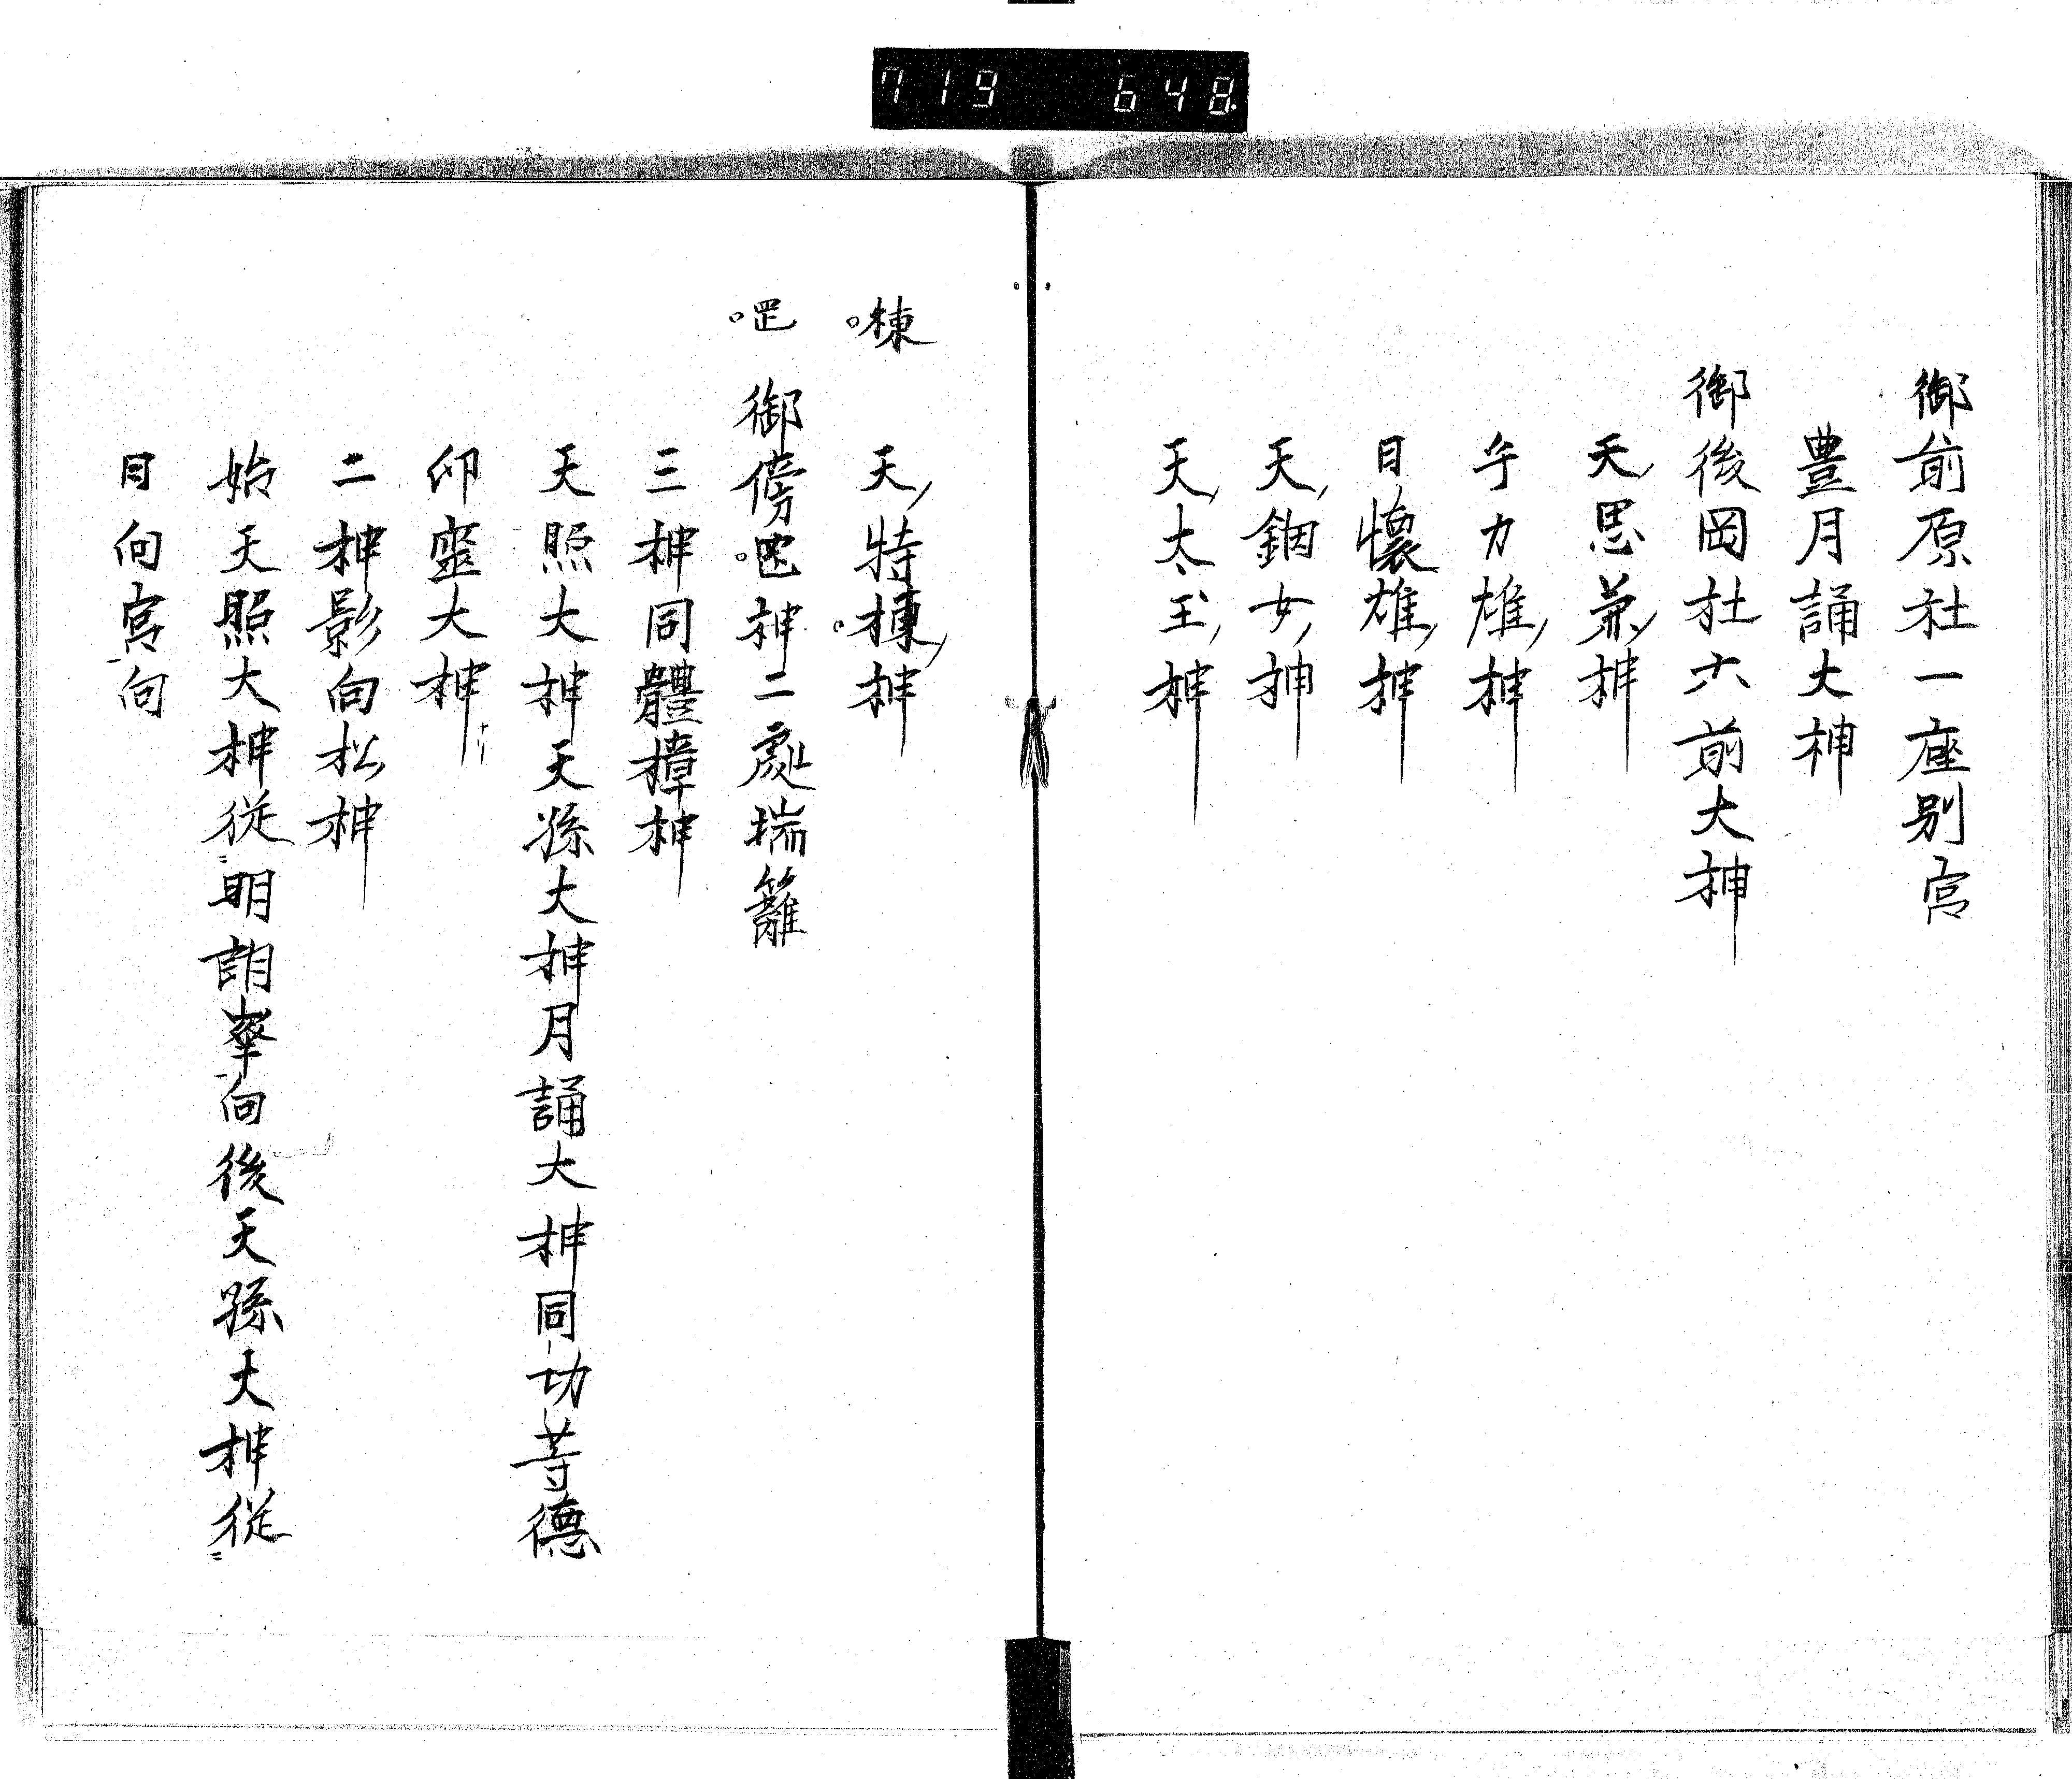 719 648
御前原社一座別宮
豊月誦大神
御後岡社六前大神
天思兼神
手力雄神
日懐雄神
天鈿女神
天太玉神
棟 天特棟神
御傍 神二處瑞籬
三神同體樟神
天照大神天孫大神月誦大神同功等德
仰靈大神
二神影向松神
始天照大神従明 峯向後天孫大神従
日向宮向